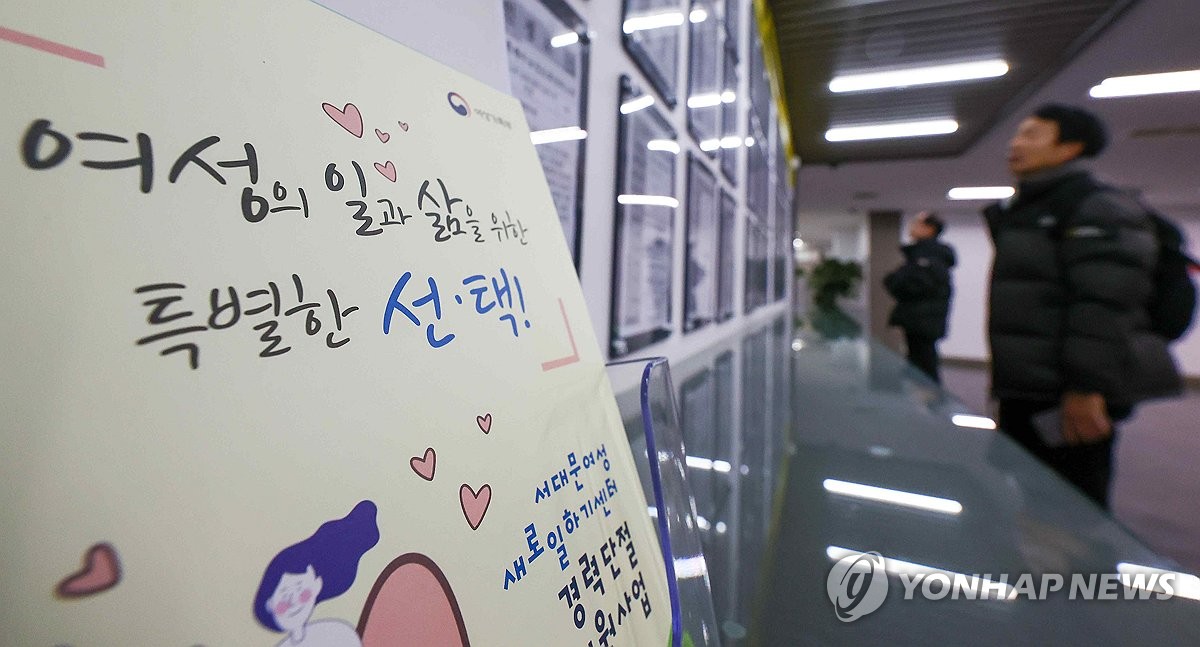 여성의 일과 삶을 위한
특별한 선·택!
서대문여성
새로일하기센터
경력단절
원사업
YONHAP NEWS